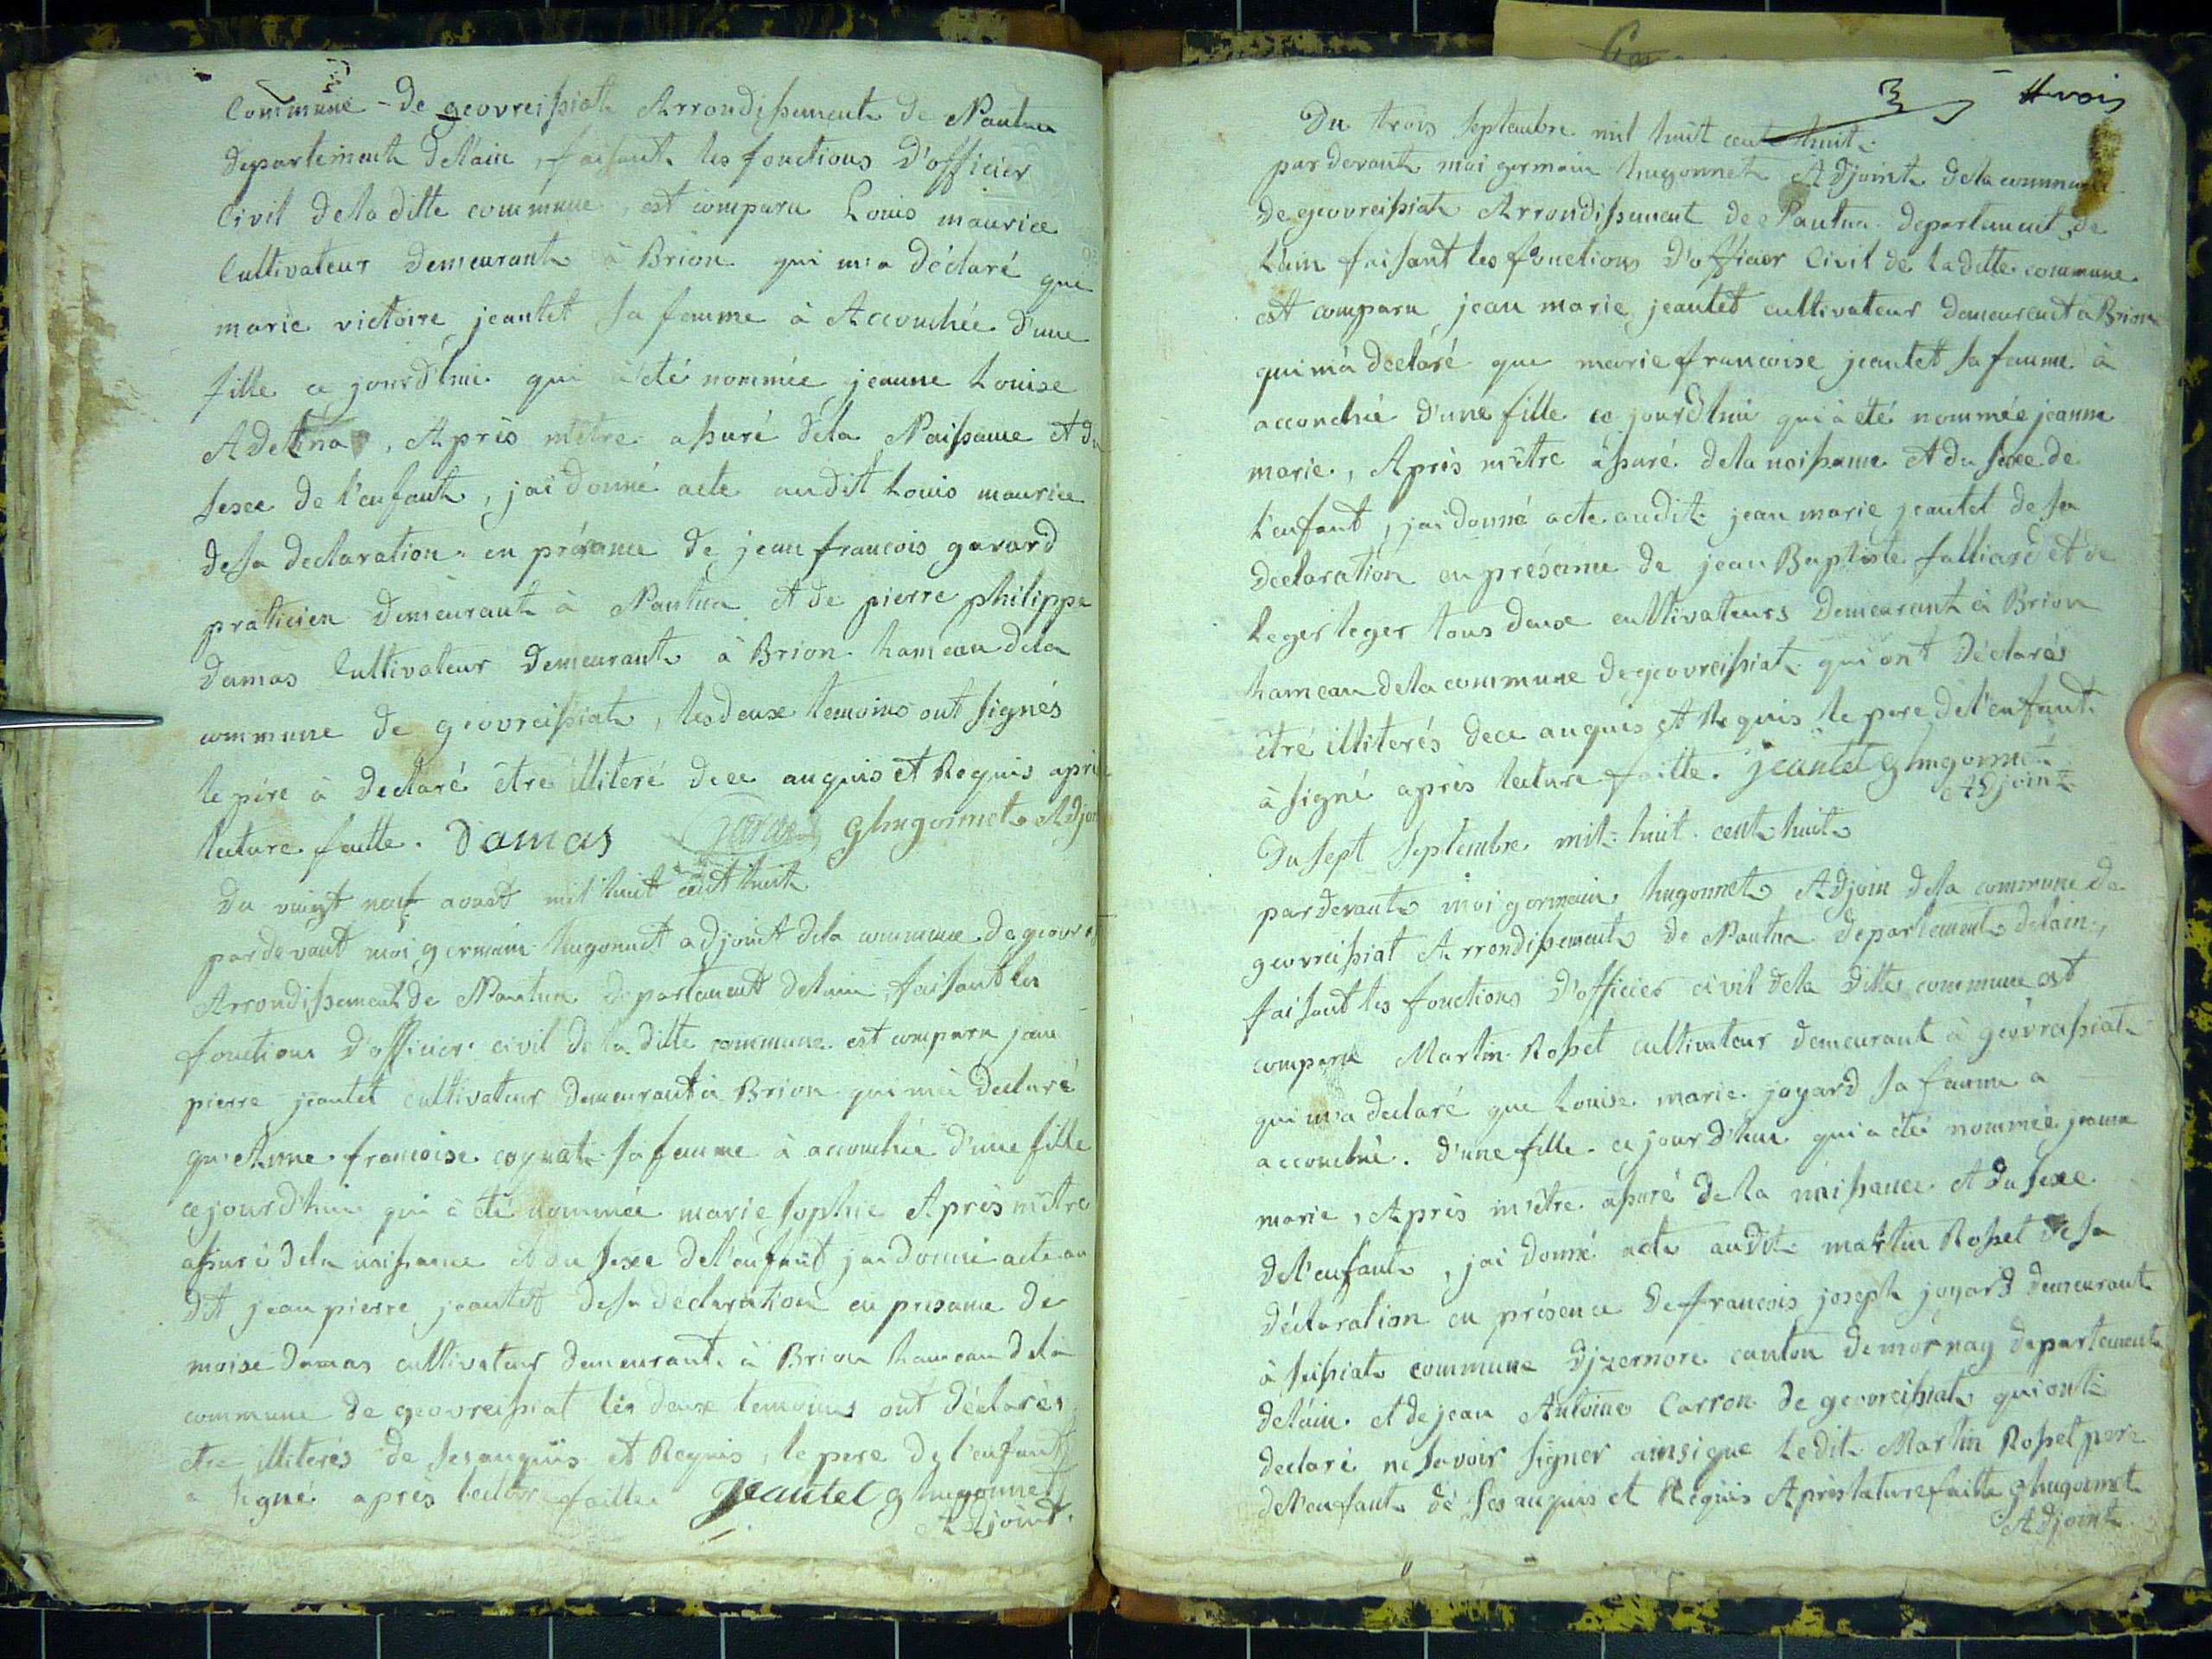 Commune - de geovreissiat Arrondissement de Nantua
departement delain, faisant les fonctions D'officier
Civil dela ditte commune, est comparu Louis maurice
Cultivateur demeurant à Brion qui m'a déclaré que
marie victoire jeantet sa femme à Accouchée d'une
fille ce jourd'hui qui a été nommée jeanne Louise
Adelina, Après m'etre assuré déla Naissance Et du
sexe de l'enfant, jai donné acte audit Louis maurice
de sa declaration en présance de jean francois gavard
praticien demeurant à Nantua et de pierre philippe
damas Cultivateur demeurant à Brion hameau dela
commune de geovreissiat, les deux temoins ont signés
le pére à declaré étre illiteré dece anquis et Requis après
lecture faitte. Damas ghugonnet Adjoi
du vingt neuf aoust mil huit cent huit
pardevant moi germain hugonnet adjoint dela commune de geovreis
Arrondissement de Nantua departement delain, faisant les
fonctions d'officier civil de la ditte commune est comparu jean
pierre jeantet cultivateur demeurant à Brion qui m'à declaré
qu'Anne francoise coynat sa femme à accouchée d'une fille
cejourdhui qui à été nommée marie sophie Après m'étre
assuré dela naissance et du sexe de l'enfant jai donné acte au
dit jean pierre jeantet de sa déclaration en presance de
moise damas cultivateur demeurant à Brion hameau dela
commune de geovreissiat les deux temoins ont déclarés
etre illiterés de ses anquis et Requis, le pere de l'enfant
a signé après lecture faitte Jeantet g hugonnet
Adjoint.
3 trois
Du trois septembre mil huit cent huit
par devant moi germain hugonnet Adjoint dela commune
de geovreissiat Arrondissement de Nantua departement de
Lain faisant les fonctions D'officier Civil de laditte commune
est comparu jean marie jeantet cultivateur demeurant à Brion
qui m'à declaré que marie francoise jeantet sa femme à
accouchée d'une fille ce jourd'hui qui à été nommée jeanne
marie, Après m'être assuré dela naissance et du sexe de
L'enfant, jai donné acte audit jean marie jeantet de sa
declaration en présence de jean Baptiste falliard et de
leger leger tous deux cultivateurs demeurant à Brion
hameau dela commune de geovreissiat qui ont déclarés
étre illiterés dece anquis et Requis le pere de l'enfant
à signé après lecture faitte. jeantet ghugonnet
Adjoint
Du sept septembre mil huit cent huit
pardevant moi germain hugonnet Adjoin dela commune de
geovreissiat Arrondissement de Nantua departement delain,
faisant les fonctions d'officier civil dela ditte commune est
comparu Martin Rosset cultivateur demeurant à geovreissiat
qui m'a declaré que Louise marie joyard sa femme a
accouché d'une fille cejourd'hui qui a été nommée jeanne
marie, Après m'être assuré de la naissance et du sexe
de l'enfant, jai donné acte audit martin Rosset de sa
déclaration en présence de francois joseph joyard demeurant
à seissiat commune Djzernore canton de mornay departement
delain et de jean Antoine Carron de geovreissiat qui ont
declaré ne savoir signer ainsi que ledit Martin Rosset pere
de l'enfant de ses anquis et Requis Après lecture faitte ghugonnet
Adjoint